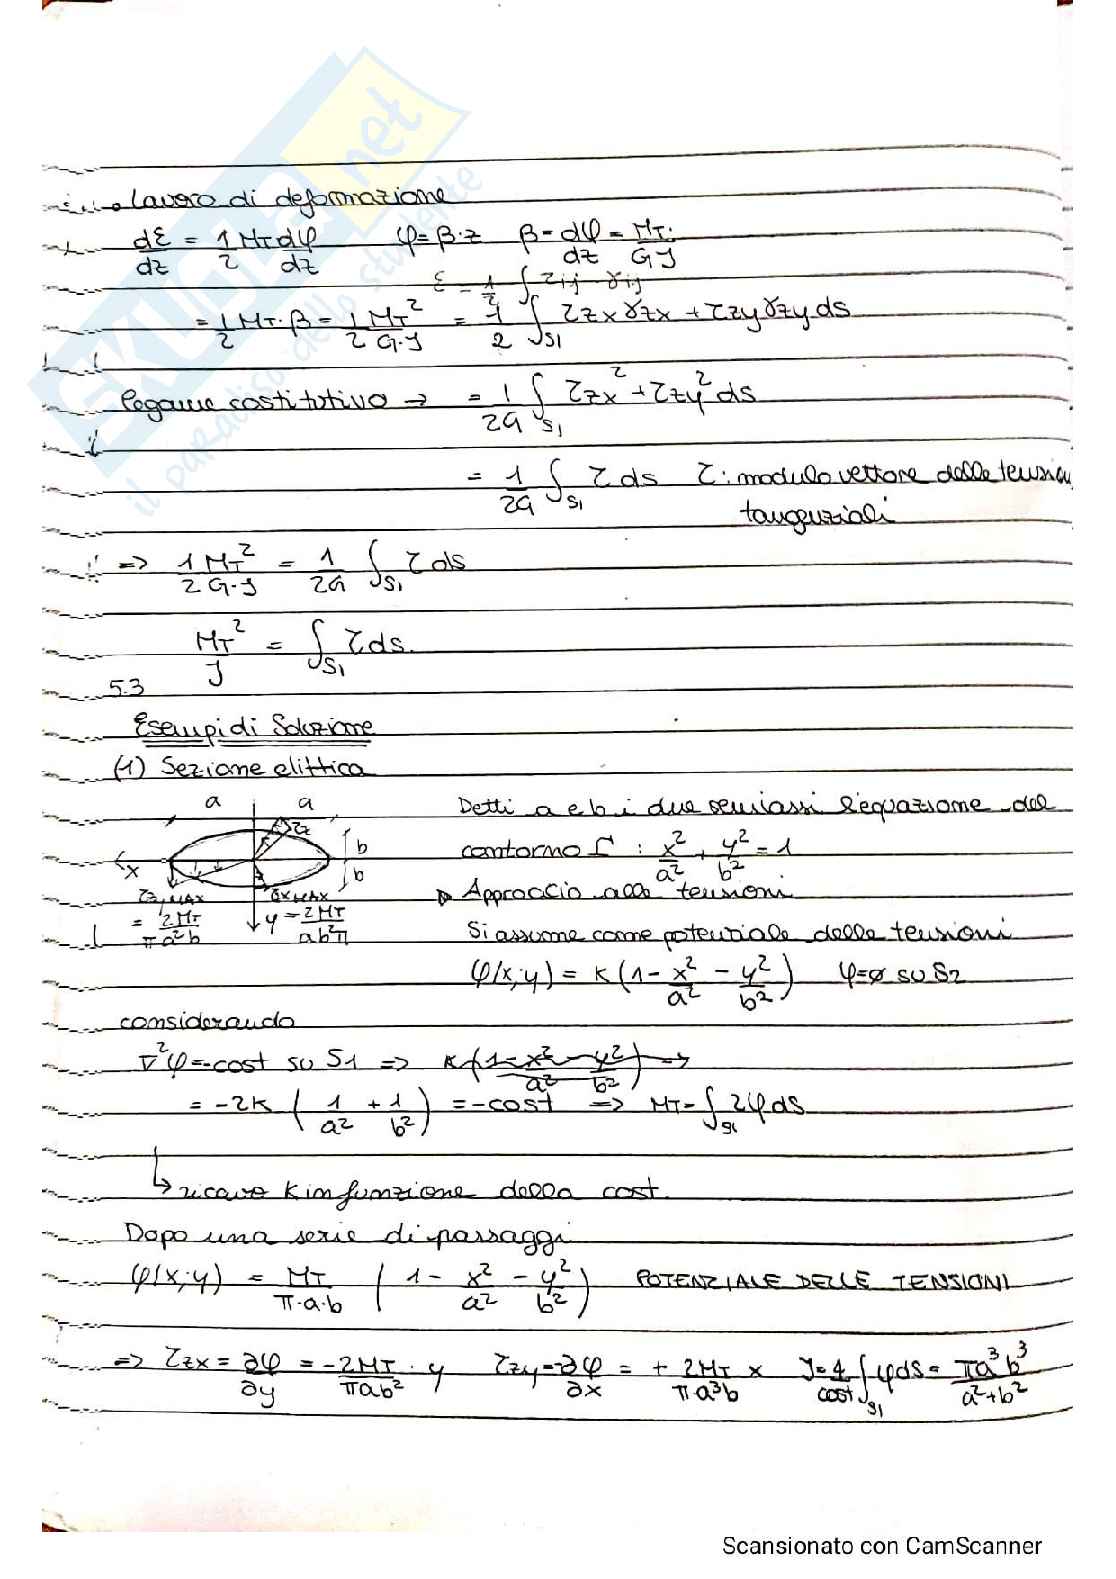 SKUOLA.net
il paradiso dello studente
• Lavoro di deformazione
dε/dz = 1/2 MT dφ/dz   φ = β·z   β = dφ/dz = MT/GJ
ε = 1/2 ∫ τij γij
= 1/2 MT·β = 1/2 MT²/G·J = 1/2 ∫S1 τzx γzx + τzy γzy ds
legame costitutivo → = 1/2G ∫S1 τzx² + τzy² ds
= 1/2G ∫S1 τ ds   τ: modulo vettore delle tensioni
tangenziali
=> 1/2 MT²/G·J = 1/2G ∫S1 τ ds
MT²/J = ∫S1 τ ds.
5.3
Esempi di Soluzione
(1) Sezione elittica
a a
b
b
x
y
τz,MAX = 2MT/πa²b
τzx MAX = 2MT/ab²π
Detti a e b i due semiassi l'equazione del
contorno Γ : x²/a² + y²/b² = 1
▷ Approccio alle tensioni
Si assume come potenziale delle tensioni
φ(x;y) = K(1 - x²/a² - y²/b²)   φ=ø su S2
considerando
∇²φ = -cost su S1 => K(1 - x²/a² - y²/b²) →
= -2K (1/a² + 1/b²) = -cost => MT = ∫S1 2φ ds
↳ ricavo K in funzione della cost.
Dopo una serie di passaggi
φ(x;y) = MT/π·a·b (1 - x²/a² - y²/b²)   POTENZIALE DELLE TENSIONI
=> τzx = ∂φ/∂y = -2MT/πab² · y   τzy = -∂φ/∂x = + 2MT/πa³b x   J = 4/cost ∫S1 φ ds = πa³b³/a²+b²
Scansionato con CamScanner